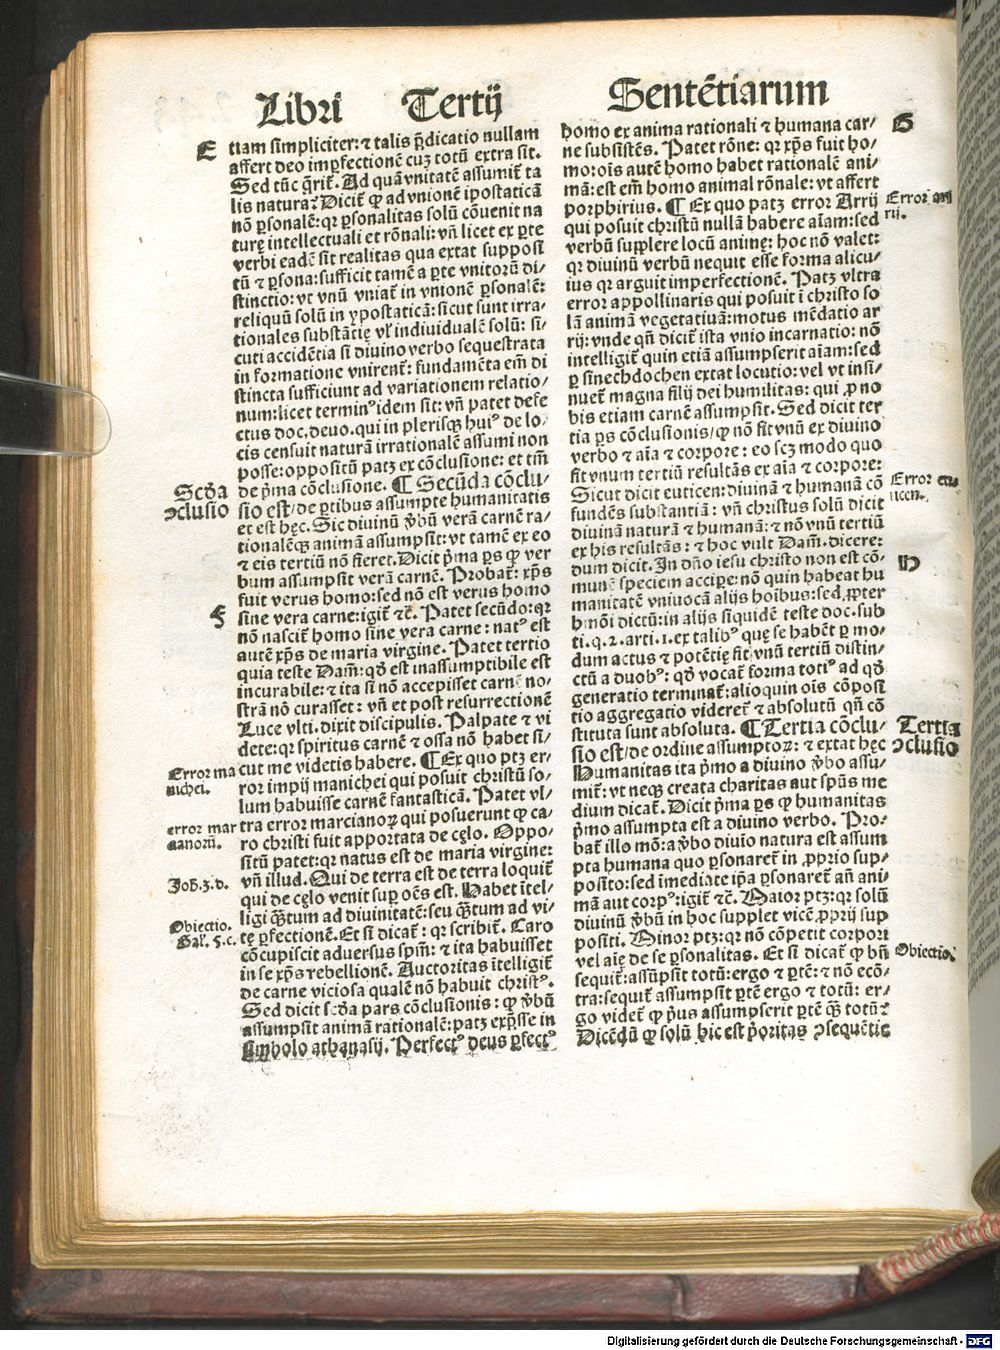 Libri Tertij Sentẽtiarum
E
tiam simpliciter: ⁊ talis p̃dicatio nullam
affert deo imꝑfectionẽ cuꝫ totũ extra sit.
Sed tũc q̃rit̃. Ad quã vnitatẽ assumit̃ ta
lis natura? Dicit̃ ꝙ ad vnionẽ ipostaticã
nõ ꝑsonalẽ: qꝛ ꝑsonalitas solũ cõuenit na
turę intellectuali et rõnali: vñ licet ex ꝑte
verbi eadẽ sit realitas qua extat supposi
tũ ⁊ ꝑsona: sufficit tamẽ a ꝑte vnitorũ di/
stinctio: vt vnũ vniat̃ in vnionẽ ꝑsonalẽ:
reliquũ solũ in ypostaticã: sicut sunt irra/
tionales substãtię vl̃ indiuidualẽ solũ: si/
cuti accidẽtia si diuino verbo sequestrata
in formatione vnirent̃: fundamẽta em̃ di
stincta sufficiunt ad variationem relatio/
num: licet terminꝰ idem sit: vñ patet defe
ctus doc. deuo. qui in plerisqꝫ huiꝰ de lo/
cis censuit naturã irrationalẽ assumi non
posse: oppositũ patꝫ ex cõclusione: et tm̃
de p̃ma cõclusione. ¶ Secũda cõclu/
Scđa
ꝯclusio
sio est/ de ꝑtibus assumpte humanitatis
et est hęc. Sic diuinũ ỽbũ verã carnẽ ra/
tionalẽqꝫ animã assumpsit: vt tamẽ ex eo
⁊ eis tertiũ nõ fieret. Dicit p̃ma ꝑs ꝙ ver
bum assumpsit verã carnẽ. Probat̃: xp̃s
fuit verus homo: sed nõ est verus homo
F
sine vera carne: igit̃ ⁊c̃. Patet secũdo: qꝛ
nõ nascit̃ homo sine vera carne: natꝰ est
autẽ xp̃s de maria virgine. Patet tertio
quia teste Dam̃: qđ est inassumptibile est
incurabile: ⁊ ita si nõ accepisset carnẽ no/
strã nõ curasset: vñ et post resurrectionẽ
Luce vlti. dixit discipulis. Palpate ⁊ vi
dete: qꝛ spiritus carnẽ ⁊ ossa nõ habet si/
cut me videtis habere. ¶ Ex quo ptꝫ er/
Error ma
nichei.
ror impij manichei qui posuit christũ so/
lum habuisse carnẽ fantasticã. Patet vl/
tra error marcianoꝝ qui posuerunt ꝙ ca/
error mar
cianorũ.
ro christi fuit apportata de cęlo. Oppo/
sitũ patet: qꝛ natus est de maria virgine:
vñ illud. Qui de terra est de terra loquit̃
Joh. 3. d.
qui de cęlo venit sup oẽs est. Habet ĩtel/
ligi q̃tum ad diuinitatẽ: seu q̃tum ad vi/
Obiectio.
Gal̃. 5. c.
tę ꝑfectionẽ. Et si dicat̃: qꝛ scribit̃. Caro
cõcupiscit aduersus spm̃: ⁊ ita habuisset
in se xp̃s rebellionẽ. Auctoritas ĩtelligit̃
de carne viciosa qualẽ nõ habuit christꝰ.
Sed dicit scđa pars cõclusionis: ꝙ ỽbũ
assumpsit animã rationalẽ: patꝫ exp̃sse in
simbolo athanasij. Perfectꝰ deus ꝑfectꝰ
homo ex anima rationali ⁊ humana car/
G
ne subsistẽs. Patet rõne: qꝛ xp̃s fuit ho/
mo: ois autẽ homo habet rationalẽ ani/
mã: est em̃ homo animal rõnale: vt affert
porphirius. ¶ Ex quo patꝫ error Arrij
Error arrij.
qui posuit christũ nullã habere aĩam: sed
verbũ supplere locũ animę: hoc nõ valet:
qꝛ diuinũ verbũ nequit esse forma alicu/
ius qꝛ arguit imperfectionẽ. Patꝫ vltra
error appollinaris qui posuit ĩ christo so
lã animã vegetatiuã: motus mẽdatio ar
rij: vnde qñ dicit̃ ista vnio incarnatio: nõ
intelligit̃ quin etiã assumpserit aĩam: sed
ꝑ sinechdochen extat locutio: vel vt insi/
nuet̃ magna filij dei humilitas: qui ꝓ no
bis etiam carnẽ assumpsit. Sed dicit ter
tia ꝑs cõclusionis/ ꝙ nõ fit vnũ ex diuino
verbo ⁊ aĩa ⁊ corpore: eo scꝫ modo quo
fit vnum tertiũ resultãs ex aĩa ⁊ corpore:
Sicut dicit euticen: diuinã ⁊ humanã cõ
Error euticen.
fundẽs substantiã: vñ christus solũ dicit
diuinã naturã ⁊ humanã: ⁊ nõ vnũ tertiũ
ex his resultãs: ⁊ hoc vult Dam̃. dicere:
dum dicit. In dño iesu christo non est cõ/
H
munẽ speciem accipe: nõ quin habeat hu
manitatẽ vniuocã alijs hoibus: sed ꝓpter
hmõi dictũ: in alijs siquidẽ teste doc. sub
ti. q. 2. arti. 1. ex talibꝰ quę se habẽt ꝑ mo/
dum actus ⁊ potẽtię fit vnũ tertiũ distin/
ctũ a duobꝰ: qđ vocat̃ forma totiꝰ ad qđ
generatio terminat̃: alioquin ois cõposi
tio aggregatio videret̃ ⁊ absolutũ qñ cõ
stituta sunt absoluta. ¶ Tertia cõclu/
Tertia
ꝯclusio
sio est/ de ordine assumptoꝝ: ⁊ extat hęc
Humanitas ita p̃mo a diuino ỽbo assu/
mit̃: vt neqꝫ creata charitas aut spũs me
dium dicat̃. Dicit p̃ma ꝑs ꝙ humanitas
p̃mo assumpta est a diuino verbo. Pro/
bat̃ illo mõ: a ỽbo diuĩo natura est assum
pta humana quo ꝑsonaret̃ in ꝓprio sup/
posito: sed ĩmediate ip̃a ꝑsonaret̃ añ ani/
mã aut corpꝰ: igit̃ ⁊c̃. Maior ptꝫ: qꝛ solũ
diuinũ ỽbũ in hoc supplet vicẽ ꝓprij sup
positi. Minor ptꝫ: qꝛ nõ cõpetit corpori
vel aię de se ꝑsonalitas. Et si dicat̃ ꝙ bñ
Obiectio.
sequit̃: assũpsit totũ: ergo ⁊ ꝑtẽ: ⁊ nõ ecõ/
tra: sequit̃ assumpsit ꝑtẽ ergo ⁊ totũ: er/
go videt̃ ꝙ p̃us assumpserit ꝑtẽ q̃ totũ?
Dicẽdũ ꝙ solũ hic est p̃oritas ꝯsequẽtie
Digitalisierung gefördert durch die Deutsche Forschungsgemeinschaft - DFG